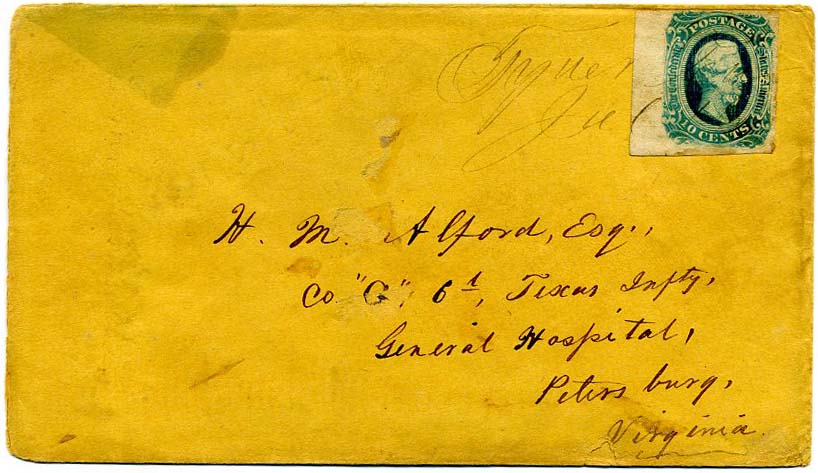 POSTAGE
10 CENTS
H. M. Alford, Esq.,
Co. "G", 6th, Texas Infty,
General Hospital,
Petersburg,
Virginia.